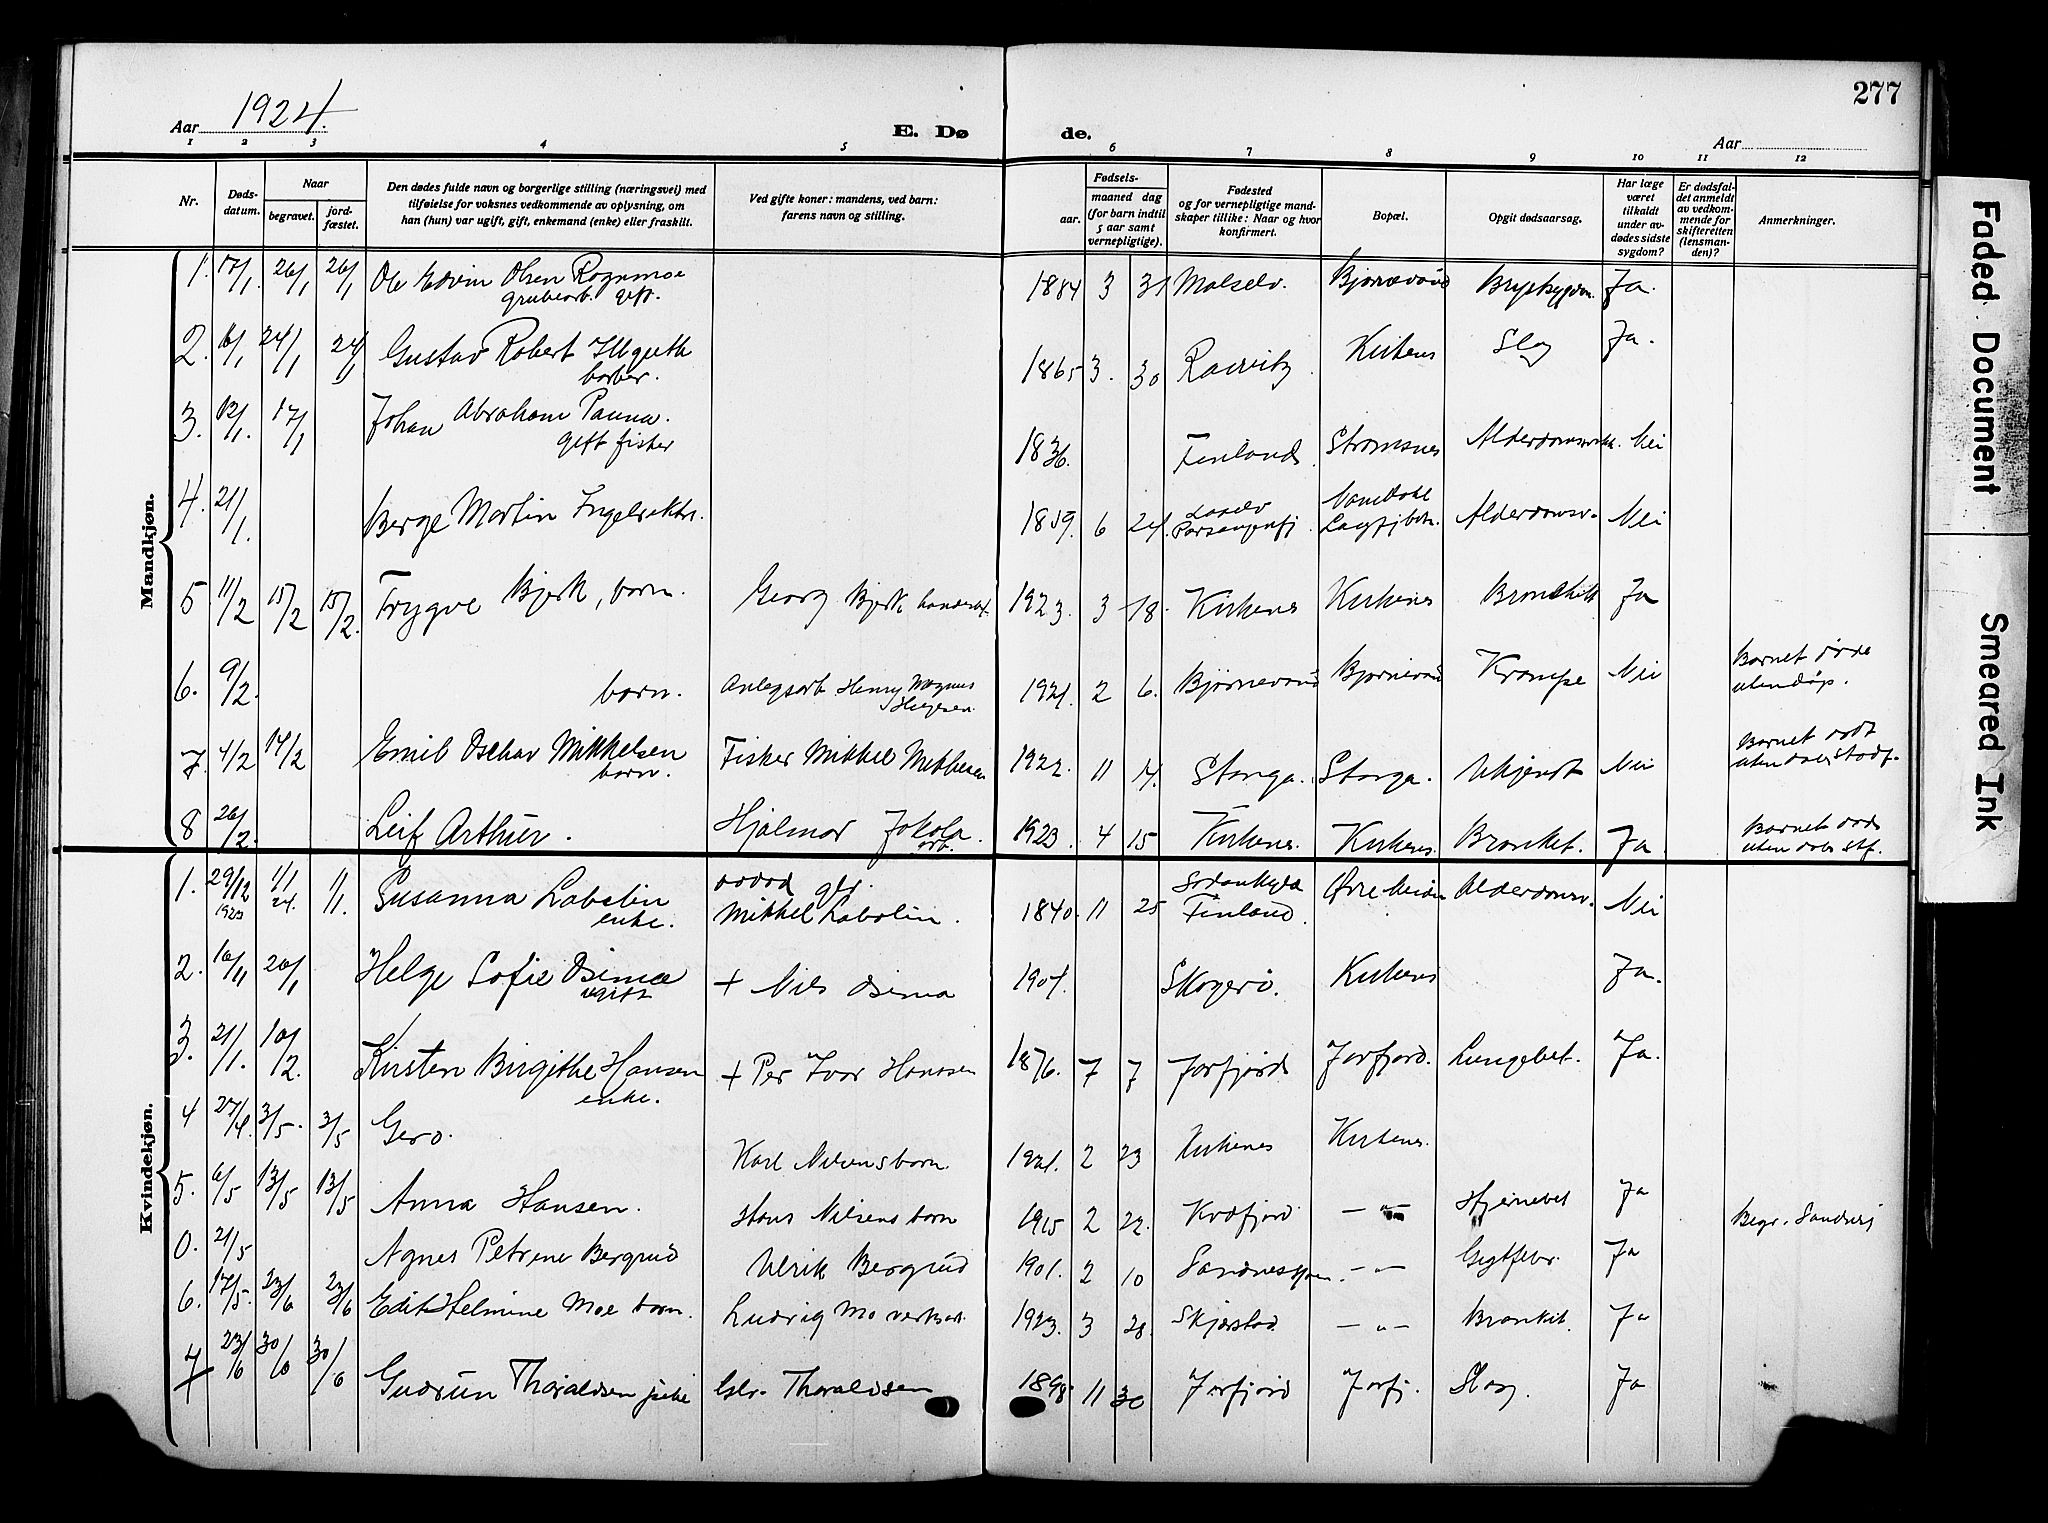 277
Aar 1924.
E. Døde.
Aar
1 2 3 4 5 6 7 8 9 10 11 12
Nr.
Døds-
datum.
Naar
begravet.
jord-
fæstet.
Den dødes fulde navn og borgerlige stilling (næringsvei) med
tilføielse for voksnes vedkommende av oplysning, om
han (hun) var ugift, gift, enkemand (enke) eller fraskilt.
Ved gifte koner: mandens, ved barn:
farens navn og stilling.
Fødsels-
aar. maaned dag
(for barn indtil
5 aar samt
vernepligtige).
Fødested
og for vernepligtige mand-
skaper tillike: Naar og hvor
konfirmert.
Bopæl.
Opgit dødsaarsag.
Har læge
været
tilkaldt
under av-
dødes sidste
sygdom?
Er dødsfal-
det anmeldt
av vedkom-
mende for
skifteretten
(lensman-
den)?
Anmerkninger.
Mandkjøn.
1. 17/1 26/1 26/1 Ole Edvin Olsen Rognmoe 1884 3 31 Malselv. Bjørnevand Ja.
grubearb. gift.
2. 24/1 24/1 Gustav Robert 1865 3. 30 Kirkenes Slag Ja.
barber.
3. 12/1. 17/1 Johan Abraham Panna. 1836. Finland. Strømsnes Nei
gift fisker
4. 21/1. Berge Martin Ingebrektsen. 1859. 6 24. Alderdomsv. Nei
5 11/2 15/2 15/2. Trygve Bjerk, barn. Georg Bjerk 1923. 3 18. Kirkenes Kirkenes Bronchitt Ja
6. 9/2. barn. Anlegsarb. Henry Magnus 1924. 2 6. Bjørnevand Bjørnevand Krampe Nei Barnet døde
uten daap.
7. 4/2 14/2 Emil Oschar Mikkelsen Fisker Mikkel Mikkelsen 1922. 11 14. Stonga. Stonga. Ukjendt Nei Barnet
barn.
8 26/2. Leif Arthur. Hjalmar Jokola 1923. 4 15 Kirkenes. Kirkenes. Bronkit. Ja Barnet
arb.
Kvindekjøn.
1. 29/12 1923 1/1 24. 1/1. Susanna Labelin 1840. 11 25 Finland. Alderdomsv. Nei
enke. Mikkel Labolin.
2. 26/1 Helge Sofie Osima + Nils Osima 1904. Skogerø. Kirkenes Ja.
ugift
3. 21/1. 10/2. Kirsten Birgithe Hansen + Per Ivar Hansen 1876. 7 7 Jarfjord Jarfjord. Lungebet. Ja.
enke.
4 27/4. 3/5. 3/5 Gerd. Karl Nilsens barn. 1924. 2 23 Kirkenes Kirkenes.
5. 6/5 13/5 13/5 Anna Hansen. Hans Nilsens barn 1915 2 22. Kvæfjord — „ — Hjernebet Ja Begr. i Sandnes
0. 21/5 Agnes Petrine Bergrud Ulrik Bergrud 1901. 2 10 — „ — Gigtfeber. Ja
6. 17/5. 23/6 23/6 Edit Helmine Moe barn. Ludvig Mo 1923. 3 28. Skjerstad. — „ — Bronkit. Ja
7 23/6 30/6 30/6 Gudrun Thoraldsen pike Thoraldsen 1898 11 30 Jarfjord Jarfj. Slag. Ja
Faded Document
Smeared Ink